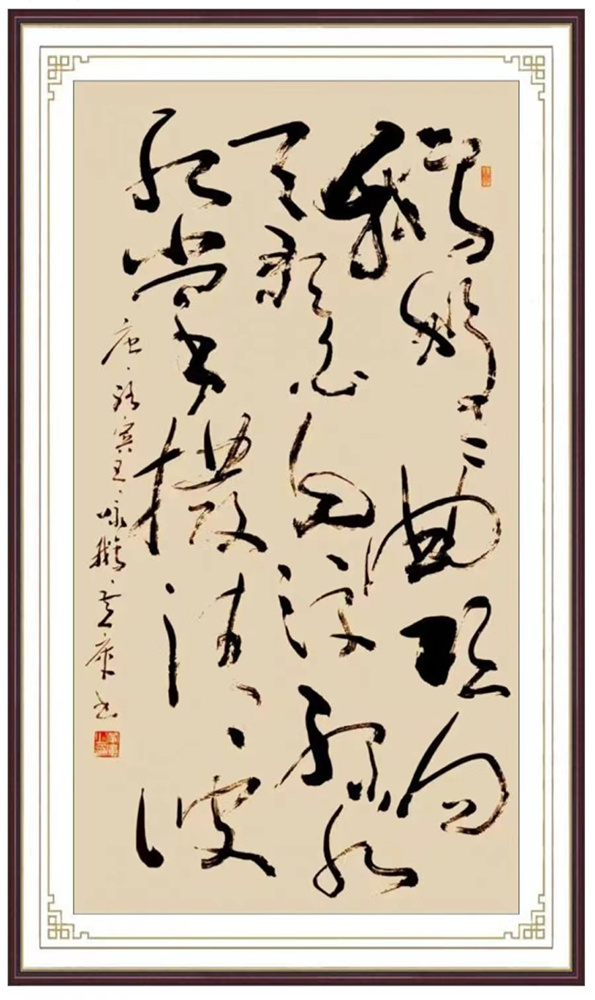 鹅鹅鹅曲项向
天歌白毛浮绿水
红掌撥清波
唐骆宾王咏鹅书